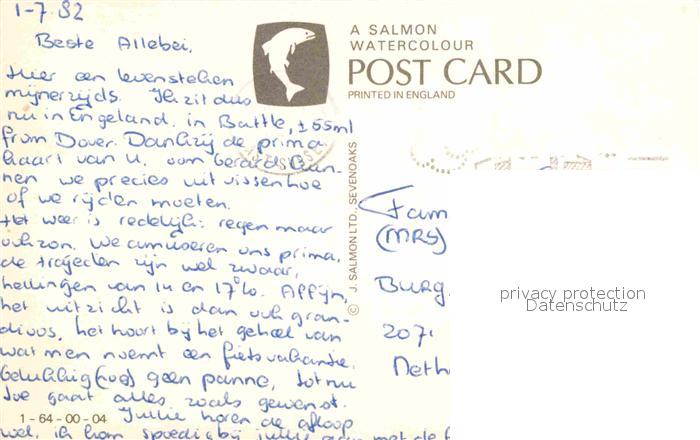 1-7.82
Beste Allebei,
Hier een levensteken
mijnerzijds. Ik zit dus
nu in Engeland, in Battle, ± 55ml
from Dover. Dankzij de prima
kaart van u, oom Gerard, kun-
nen we precies uitvissen hoe
of we rijden moeten.
Het weer is redelijk: regen maar
ook zon. We amuseren ons prima,
de trajecten zijn wel zwaar,
hellingen van 14 en 17%. Affijn,
het uitzicht is dan ook gran-
dioos, het hoort bij het geheel van
wat men noemt een fietsvakantie.
Gelukkig (nog) geen panne, tot nu
toe gaat alles zoals gewenst.
Jullie horen de afloop
wel, ik kom spoedig bij jullie met de
1-64-00-04
A SALMON
WATERCOLOUR
POST CARD
PRINTED IN ENGLAND
© J. SALMON LTD., SEVENOAKS
Fam
(MRS)
Burg.
207
Neth
privacy protection
Datenschutz